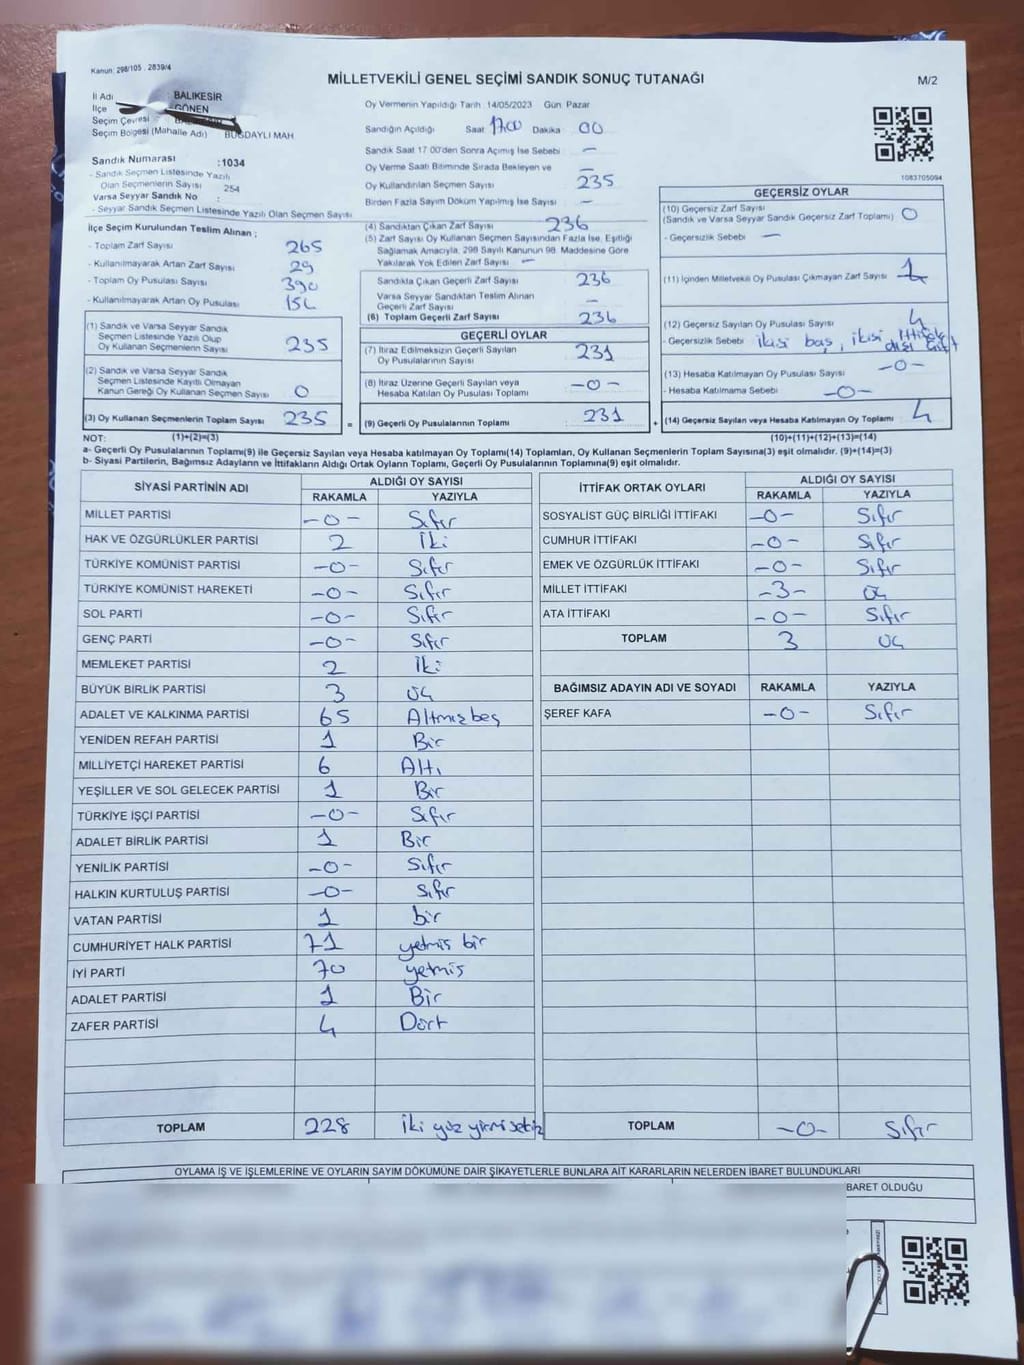 Kanun: 298/105. 2839/4
MİLLETVEKİLİ GENEL SEÇİMİ SANDIK SONUÇ TUTANAĞI
M/2
İl Adı : BALIKESİR
İlçe : GÖNEN
Seçim Çevresi
Seçim Bölgesi (Mahalle Adı) BUĞDAYLI MAH
Sandık Numarası :1034
- Sandık Seçmen Listesinde Yazılı
Olan Seçmenlerin Sayısı 254
Varsa Seyyar Sandık No :
- Seyyar Sandık Seçmen Listesinde Yazılı Olan Seçmen Sayısı
Oy Vermenin Yapıldığı Tarih :14/05/2023 Gün: Pazar
Sandığın Açıldığı Saat 17.00 Dakika 00
Sandık Saat 17:00'den Sonra Açılmış İse Sebebi —
Oy Verme Saati Bitiminde Sırada Bekleyen ve —
Oy Kullandırılan Seçmen Sayısı 235
Birden Fazla Sayım Döküm Yapılmış İse Sayısı —
1083705094
İlçe Seçim Kurulundan Teslim Alınan ;
- Toplam Zarf Sayısı 265
- Kullanılmayarak Artan Zarf Sayısı 29
- Toplam Oy Pusulası Sayısı 390
- Kullanılmayarak Artan Oy Pusulası 154
(1) Sandık ve Varsa Seyyar Sandık
Seçmen Listesinde Yazılı Olup
Oy Kullanan Seçmenlerin Sayısı 235
(2) Sandık ve Varsa Seyyar Sandık
Seçmen Listesinde Kayıtlı Olmayan
Kanun Gereği Oy Kullanan Seçmen Sayısı 0
(3) Oy Kullanan Seçmenlerin Toplam Sayısı 235 =
(4) Sandıktan Çıkan Zarf Sayısı 236
(5) Zarf Sayısı Oy Kullanan Seçmen Sayısından Fazla İse, Eşitliği
Sağlamak Amacıyla, 298 Sayılı Kanunun 98. Maddesine Göre
Yakılarak Yok Edilen Zarf Sayısı —
Sandıkta Çıkan Geçerli Zarf Sayısı 236
Varsa Seyyar Sandıktan Teslim Alınan
Geçerli Zarf Sayısı —
(6) Toplam Geçerli Zarf Sayısı 236
GEÇERLİ OYLAR
(7) İtiraz Edilmeksizin Geçerli Sayılan
Oy Pusulalarının Sayısı 231
(8) İtiraz Üzerine Geçerli Sayılan veya
Hesaba Katılan Oy Pusulası Toplamı -0-
(9) Geçerli Oy Pusulalarının Toplamı 231 +
GEÇERSİZ OYLAR
(10) Geçersiz Zarf Sayısı
(Sandık ve Varsa Seyyar Sandık Geçersiz Zarf Toplamı) 0
- Geçersizlik Sebebi —
(11) İçinden Milletvekili Oy Pusulası Çıkmayan Zarf Sayısı 1
(12) Geçersiz Sayılan Oy Pusulası Sayısı 4
- Geçersizlik Sebebi ikisi baş, ikisi ittifak dışı
(13) Hesaba Katılmayan Oy Pusulası Sayısı -0-
- Hesaba Katılmama Sebebi -0-
(14) Geçersiz Sayılan veya Hesaba Katılmayan Oy Toplamı 4
NOT: (1)+(2)=(3) (10)+(11)+(12)+(13)=(14)
a- Geçerli Oy Pusulalarının Toplamı(9) ile Geçersiz Sayılan veya Hesaba katılmayan Oy Toplamı(14) Toplamları, Oy Kullanan Seçmenlerin Toplam Sayısına(3) eşit olmalıdır. (9)+(14)=(3)
b- Siyasi Partilerin, Bağımsız Adayların ve İttifakların Aldığı Ortak Oyların Toplamı, Geçerli Oy Pusulalarının Toplamına(9) eşit olmalıdır.
SİYASİ PARTİNİN ADI ALDIĞI OY SAYISI
RAKAMLA YAZIYLA
MİLLET PARTİSİ -0- Sıfır
HAK VE ÖZGÜRLÜKLER PARTİSİ 2 İki
TÜRKİYE KOMÜNİST PARTİSİ -0- Sıfır
TÜRKİYE KOMÜNİST HAREKETİ -0- Sıfır
SOL PARTİ -0- Sıfır
GENÇ PARTİ -0- Sıfır
MEMLEKET PARTİSİ 2 İki
BÜYÜK BİRLİK PARTİSİ 3 üç
ADALET VE KALKINMA PARTİSİ 65 Altmışbeş
YENİDEN REFAH PARTİSİ 1 Bir
MİLLİYETÇİ HAREKET PARTİSİ 6 Altı
YEŞİLLER VE SOL GELECEK PARTİSİ 1 Bir
TÜRKİYE İŞÇİ PARTİSİ -0- Sıfır
ADALET BİRLİK PARTİSİ 1 Bir
YENİLİK PARTİSİ -0- Sıfır
HALKIN KURTULUŞ PARTİSİ -0- Sıfır
VATAN PARTİSİ 1 bir
CUMHURİYET HALK PARTİSİ 71 yetmiş bir
İYİ PARTİ 70 yetmiş
ADALET PARTİSİ 1 Bir
ZAFER PARTİSİ 4 Dört
TOPLAM 228 iki yüz yirmi sekiz
İTTİFAK ORTAK OYLARI ALDIĞI OY SAYISI
RAKAMLA YAZIYLA
SOSYALİST GÜÇ BİRLİĞİ İTTİFAKI -0- Sıfır
CUMHUR İTTİFAKI -0- Sıfır
EMEK VE ÖZGÜRLÜK İTTİFAKI -0- Sıfır
MİLLET İTTİFAKI -3- üç
ATA İTTİFAKI -0- Sıfır
TOPLAM 3 üç
BAĞIMSIZ ADAYIN ADI VE SOYADI RAKAMLA YAZIYLA
ŞEREF KAFA -0- Sıfır
TOPLAM -0- Sıfır
OYLAMA İŞ VE İŞLEMLERİNE VE OYLARIN SAYIM DÖKÜMÜNE DAİR ŞİKAYETLERLE BUNLARA AİT KARARLARIN NELERDEN İBARET BULUNDUKLARI
BARET OLDUĞU